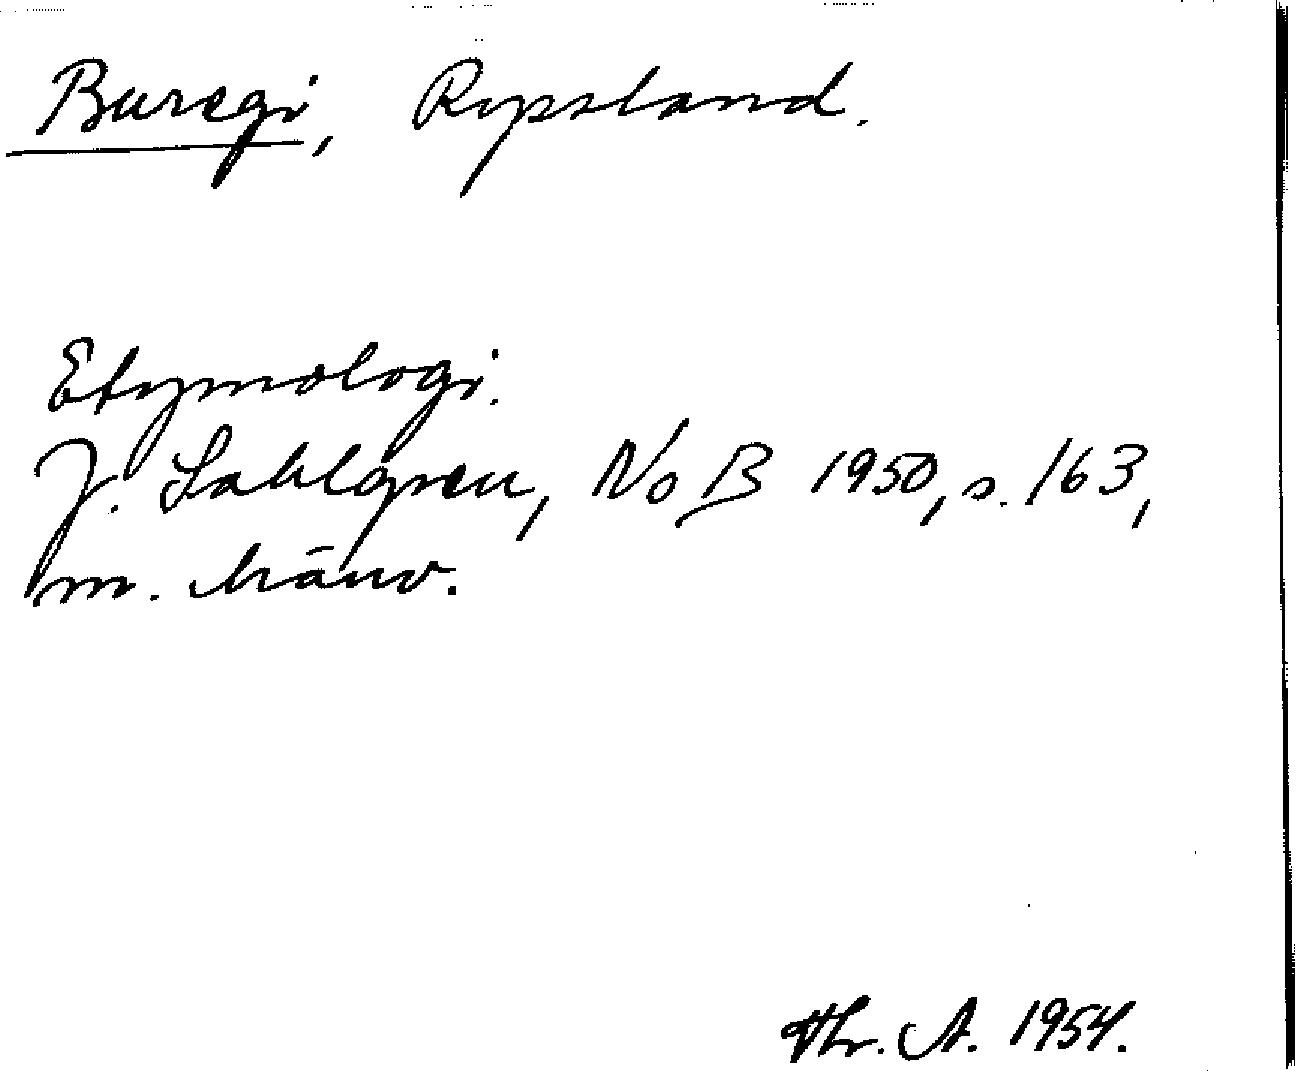 Buregi, Ryssland.
Etymologi.
J. Sahlgren, NoB 1950, s. 163,
m. hänv.
Thr. A. 1954.